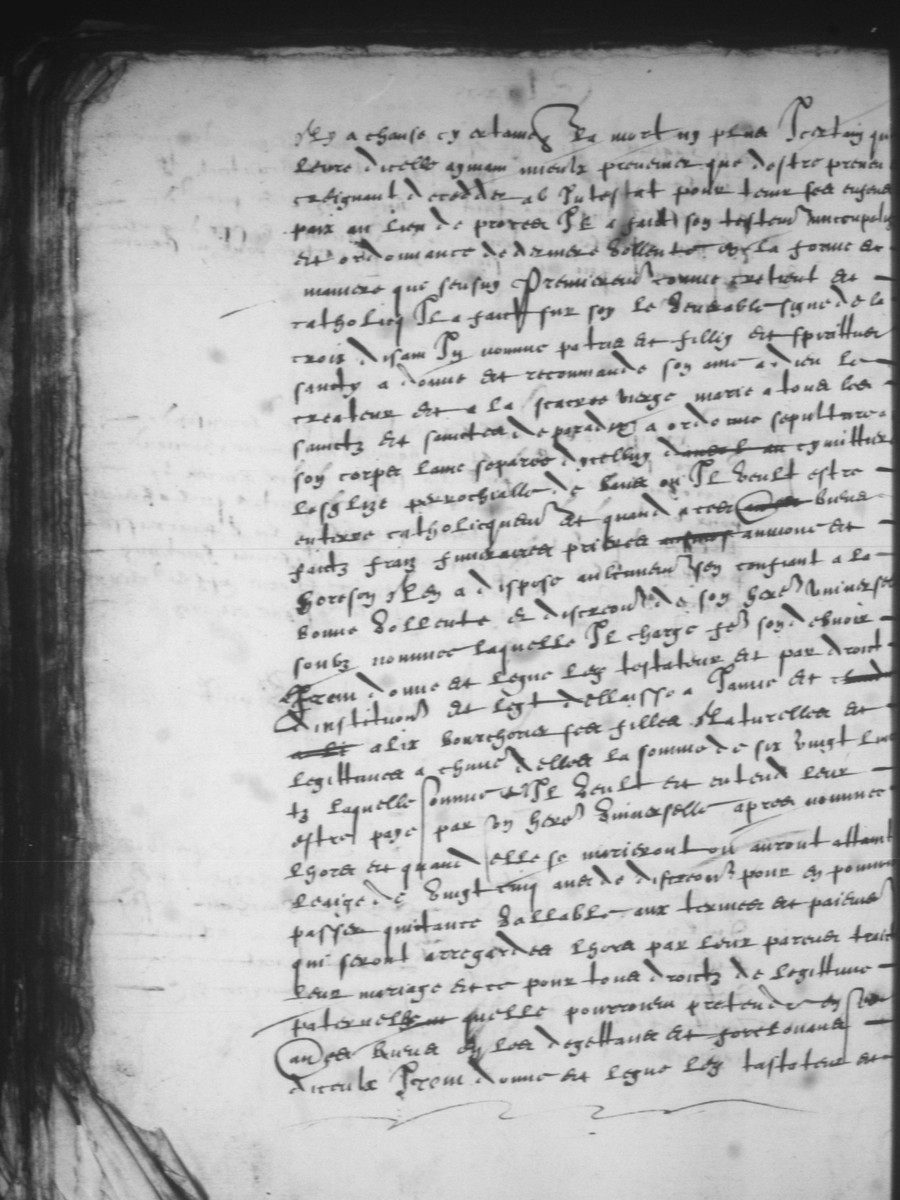 Ny a chause cy certaine la mort ny plus Incertain que
leure dicelle aymam mieulx prevenir que destre preven
creignant decedder ab Intestat pour tenir ses enfens
paix au lieu de proces Il a faict son testem nuncupatif
et ordonnance de derniere vollente en la forme et
maniere que sensuy Premierem comme cretient et
catholicq Il a faict sur soy le venerable signe de la
croix disam In nomine patris et fillii et spirittus
sancty a donne et recommande son ame a dieu le
createur et a la sacree vierge marie a tous les
sainctz et sainctes de paradix a ordonne sepulture a
son corps lame separee dycelluy cymittiere
lesglize perrochialle de ou Il veult estre
enterre catholicquem et quand a ces biens
faictz fraiz funeraires prieres aumone et
oreson Il en a dispose aultrem sen confiant a la
bonne vollente et discreon de son here universel
soubz nomme laquelle Il charge fe son debvoir
Item donne et legue led testateur et par droict
dinstitution et legt dellaisse a Janne et
alix ses filles Naturelles et
legittimes a chune delles la somme de six vingt livres
tz laquelle somme Il veult et entend leur
estre paye par son here universelle apres nommee
lhors et quand elle se marieront ou auront attaint
leaige de vingt cinq ans de discreon pour en pouvoir
passer quitance vallable aux termes et paiemes
qui seront arregardes lhors par leur parens traictant
leur mariage et ce pour tous droictz de legittime
paternelle quelle pourroient pretendre en
biens en les degettans et forclouans
diceulx Item donne et legue led testateur et